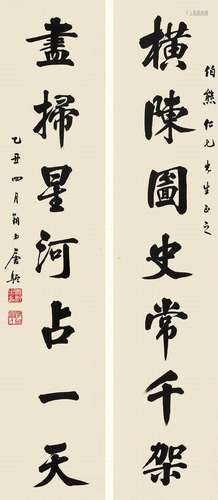 伯熊仁兄先生正之
橫陳圖史常千架
盡掃星河占一天
乙丑四月唐駝